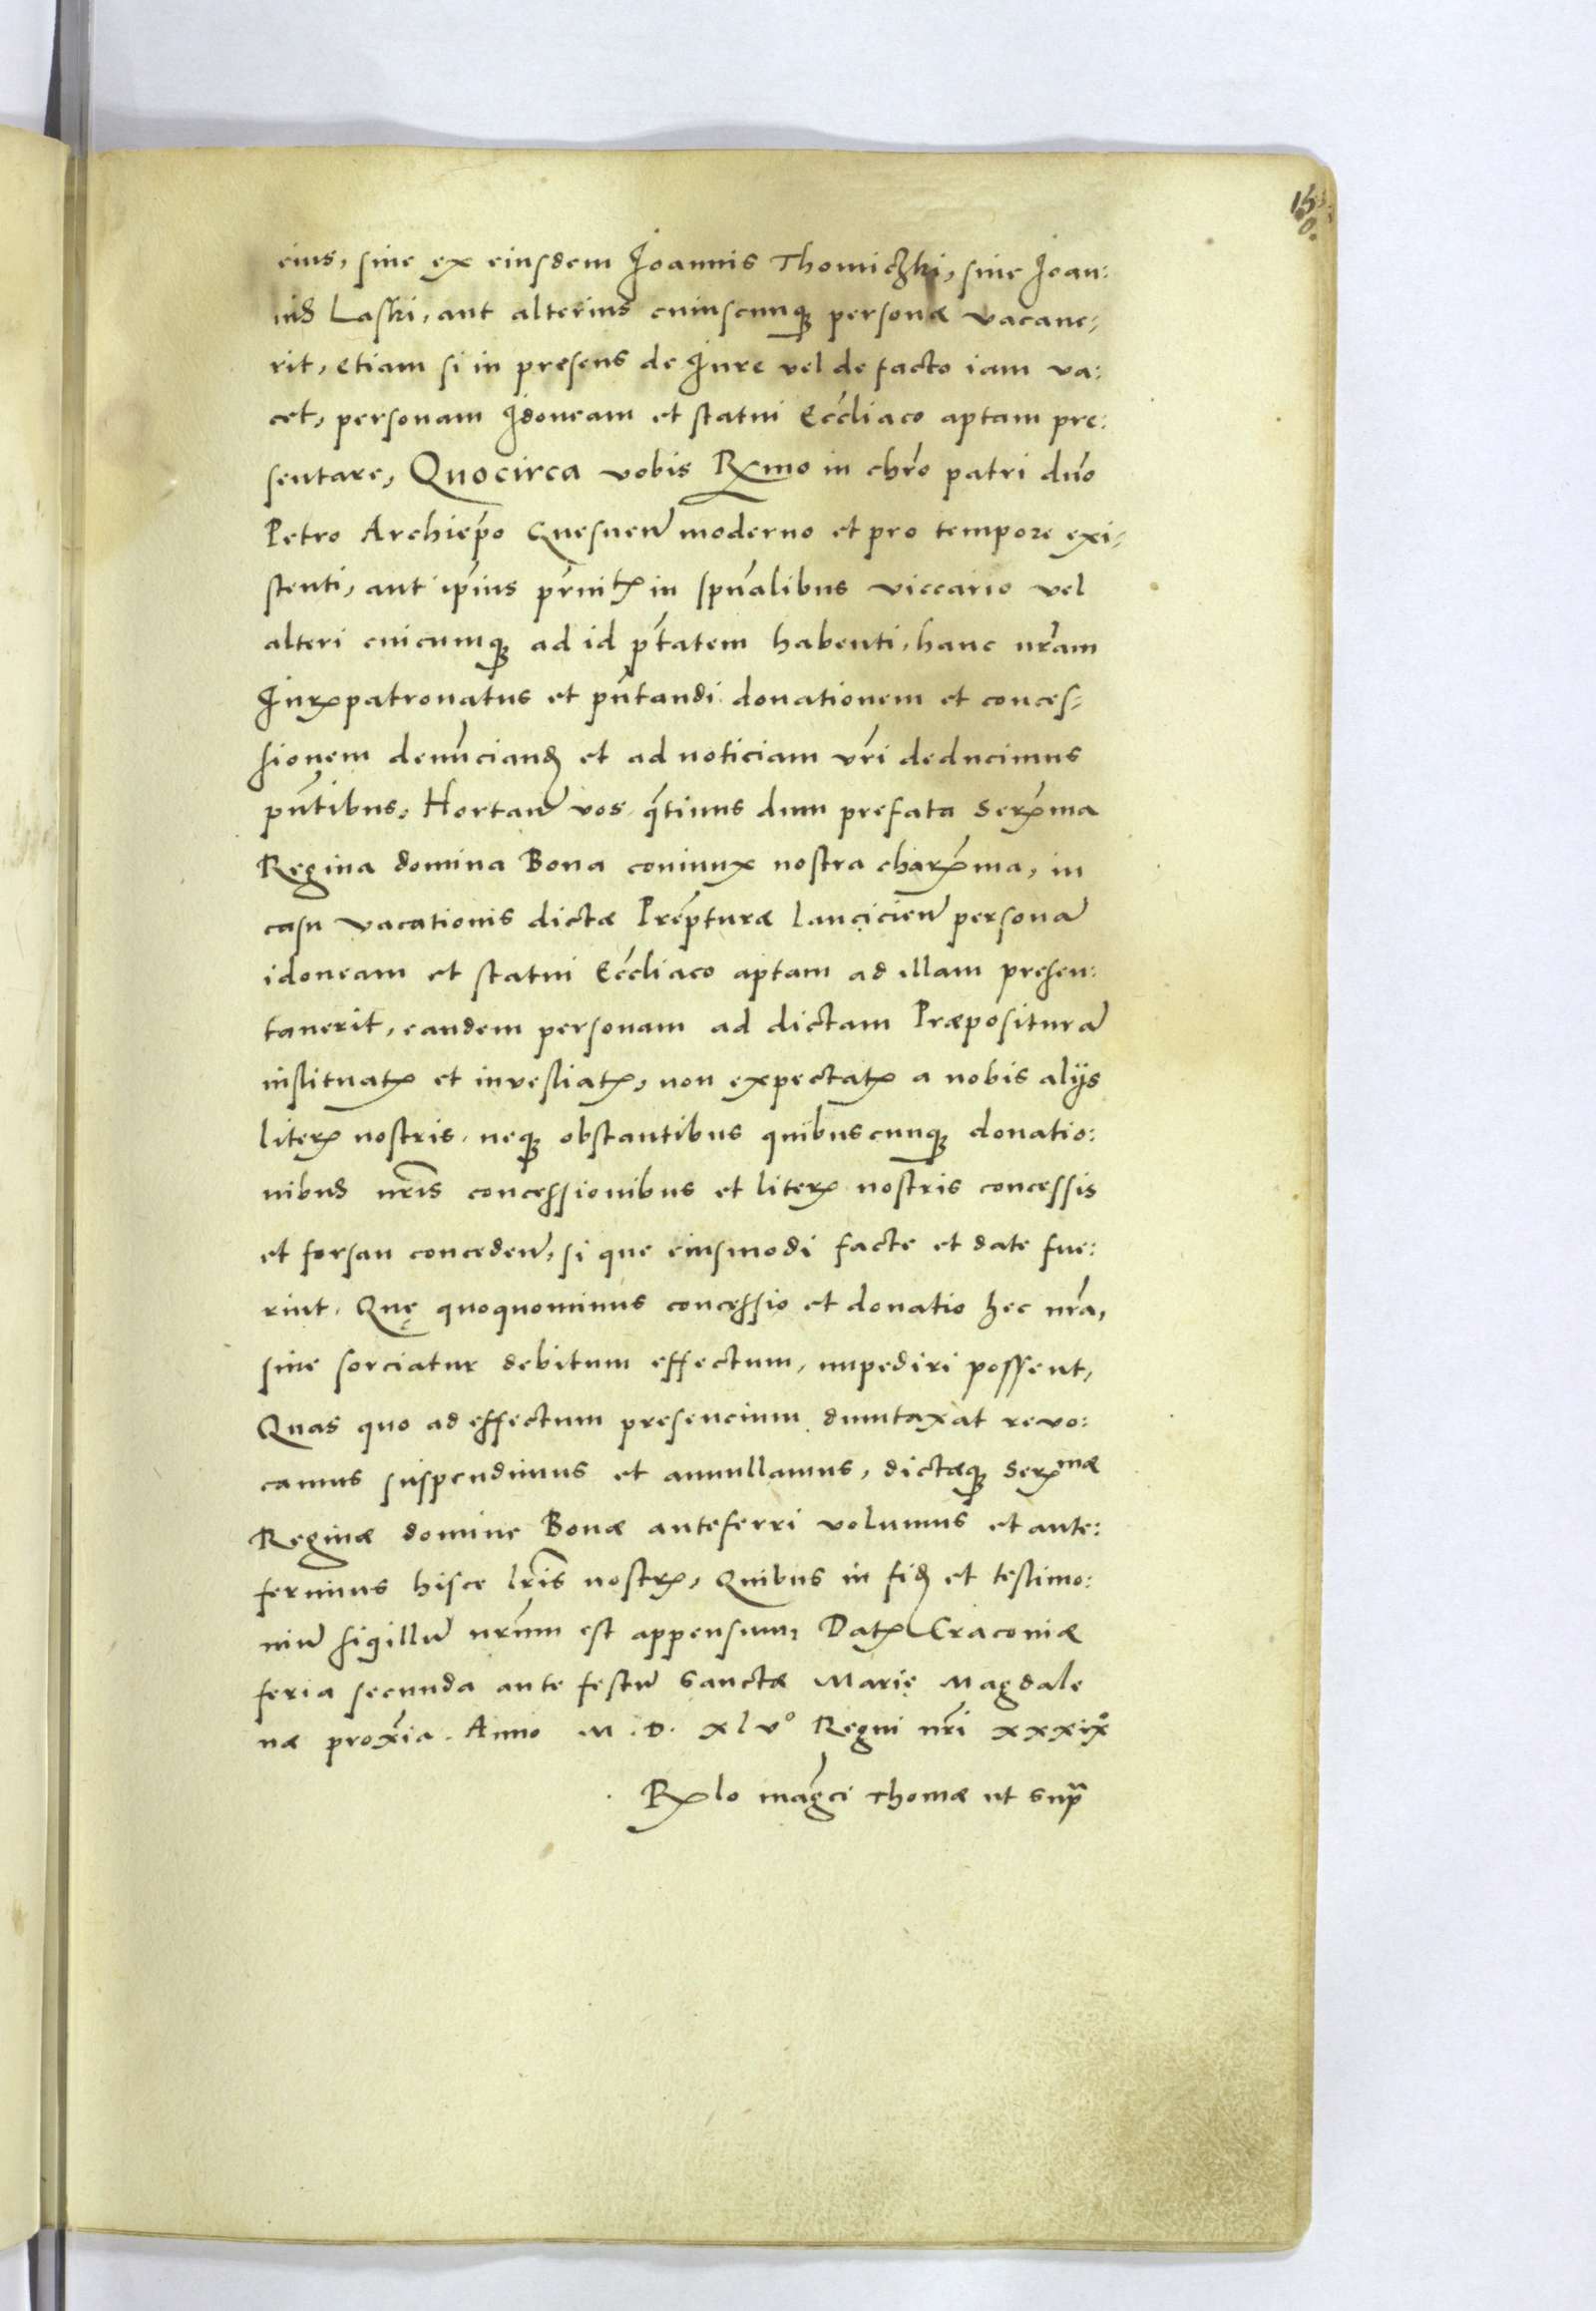 eius, siue ex eiusdem Joannis Thomiczki, siue Joan:
nis Laski, aut alterius cuiuscunq personæ vacaue-
rit, etiam si in presens de Jure vel de facto iam va:
cet, personam Jdoneam et statui Eccliaco aptam pre:
sentare, Quocirca vobis Rmo in chro patri dno
Petro Archiepo Gnesnen moderno et pro tempore exi-
stenti, aut ipius in spualibus viccario vel
alteri cuicumq ad id ptatem habenti, hanc nram
Jurpatronatus et pntandi donationem et conces-
sionem denunciand et ad noticiam vri deducimus
pntibus, Hortan vos qtinus dum prefata Serma
Regina domina Bona coniunx nostra charma, in
casu vacationis dictæ Prepturæ Lancicien persona
idoneam et statui Eccliaco aptam ad illam presen:
tauerit, eandem personam ad dictam Præpositura
instituat et inuestiat, non expectat a nobis alijs
liter nostris, neq obstantibus quibuscunq donatio:
nibus nris concessionibus et liter nostris concessis
et forsan conceden, si que eiusmodi facte et date fue:
rint. Quę quoquominus concessio et donatio hec nra,
siue sorciatur debitum effectum, impediri possent,
Quas quo ad effectum presencium dumtaxat reuo:
camus suspendimus et annullamus, dictæq Sermæ
Reginæ domine Bonæ anteferri volumus et ante:
ferimus hisce lris nostr, Quibus in fid et testimo:
niu sigillu nrum est appensum, Dat Cracouiæ
feria secunda ante festu Sanctæ Marię Magdale
næ proxia. Anno M. D. xlvo Regni nri xxxixo
Rlo magci Thomæ ut supra